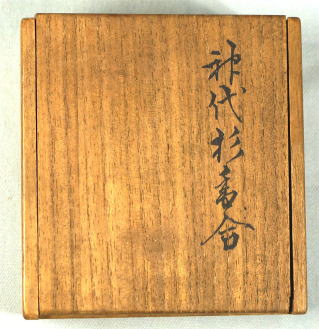 神代杉香合